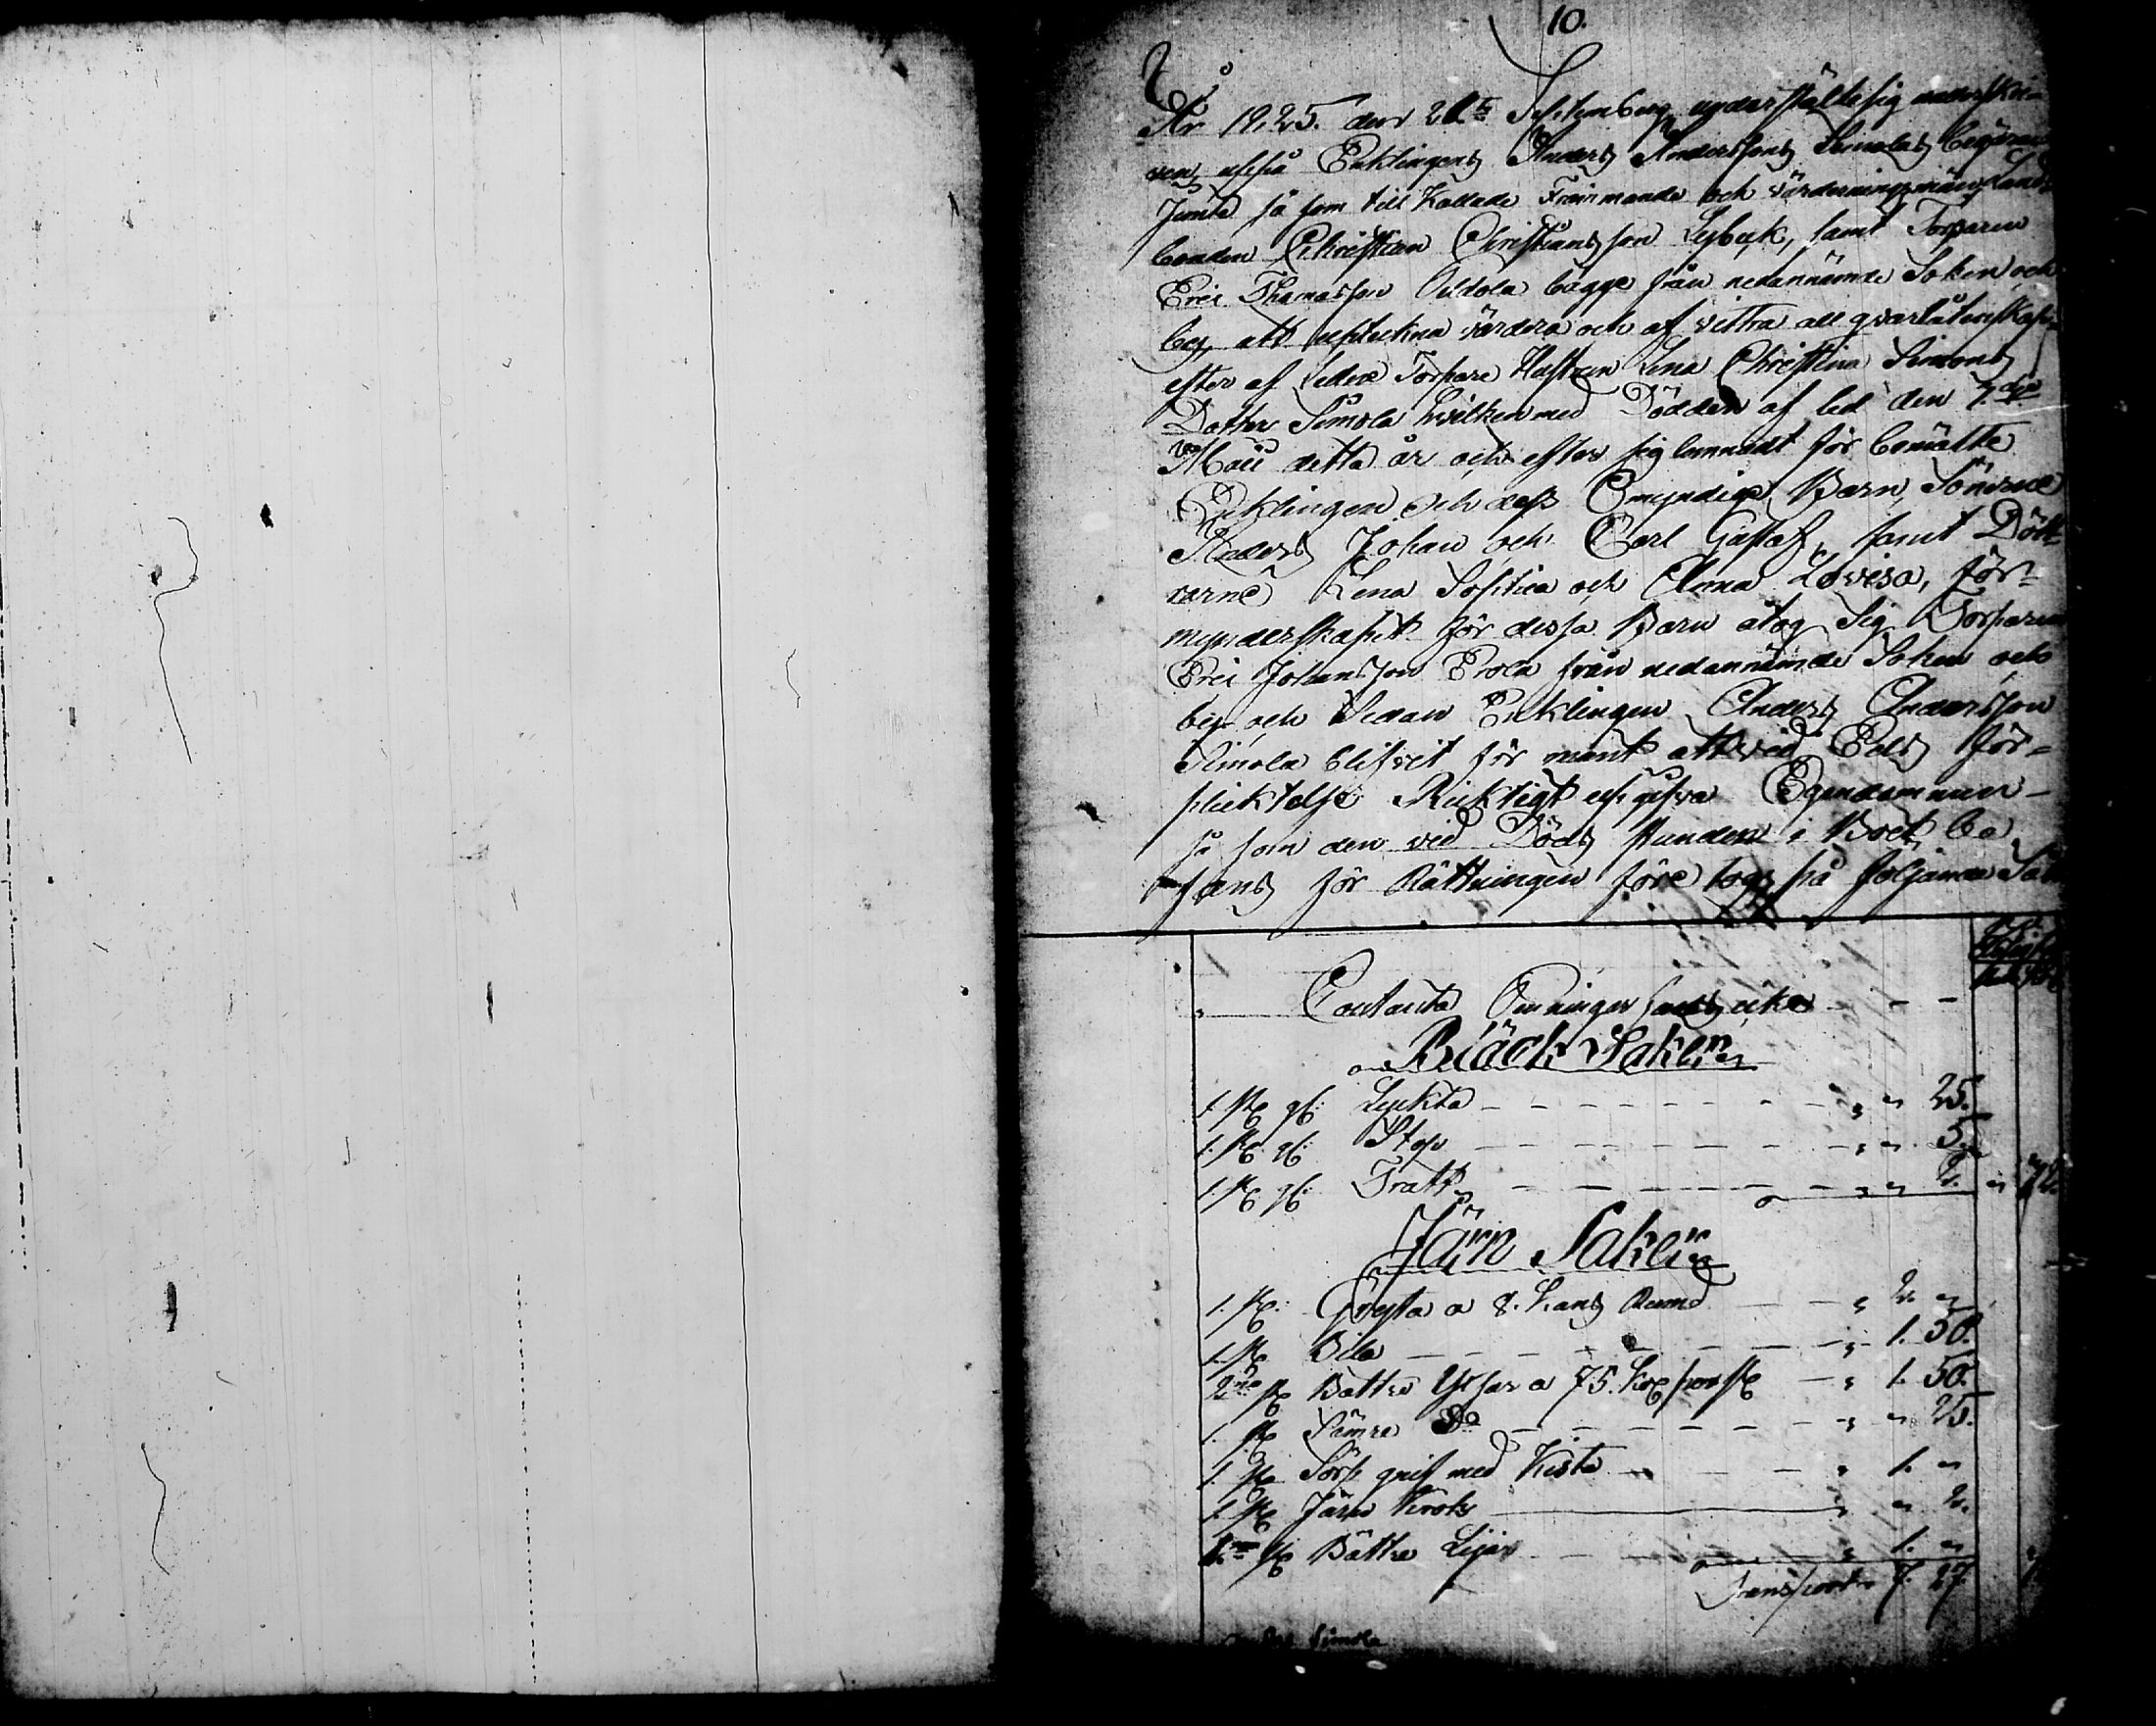 10.
År 1825. den 21 September, instälte sig
uppå Enklingens Anders Anderssons Simolas begäran
Jemte så som till Kallade Främmande och värderingsmän, Land
bonden Christian Christiansson Lybeck, samt Torparen
Eric Thomasson Uldola bägge från nedannämde Soken och
by, att upteckna värdera och af vittra all qvarlåtenskap
efter af Ledne Torpare Hustrun Lena Christina Simons
Dotter Simola hvilken med Dödden af led den 7de
Maii detta år och efter sig lemnadt för bemälte
Enklingen och dess Omyndige Barn, Sönerne
Anders Johan och Carl Gustaf, samt Dött-
rarne Lena Sophia och Anna Lovisa, för-
mynderskapet för dessa Barn åtog Sig Torparen
Eric Johansson Erola från nedannämde Soken och
by, och Sedan Enklingen Anders Andersson
Simola blifvit för mant att vid Eds för-
plicktelse Ricktigt upgifva Egendommen
så som den vid Döds stunden i Boet be
fans för Rättningen före togs på följande Sätt
Contanta Penningar fants icke - -
Bläck Saker
1. st. gl: Lyckta - - - " " 25.
1. st. gl: Stop - - - " " 5.
1. st. gl: Tratt - - - " " 2.
Järn Saker
1. st. Gryta a 8. Kans Rum " 2. "
1. st. Bila - - - " 1. 50.
2ne st. Bättre Yxar a 75. Kop per st. - " 1. 50.
1. st. Sämre Do - - - " " 25.
1. st. Sörp gryt med Kista - - " 1. "
1. st. Järn Krok " " 2.
st. Bättre Lijar - - " 1. "
Transport 7. 27.
Simola